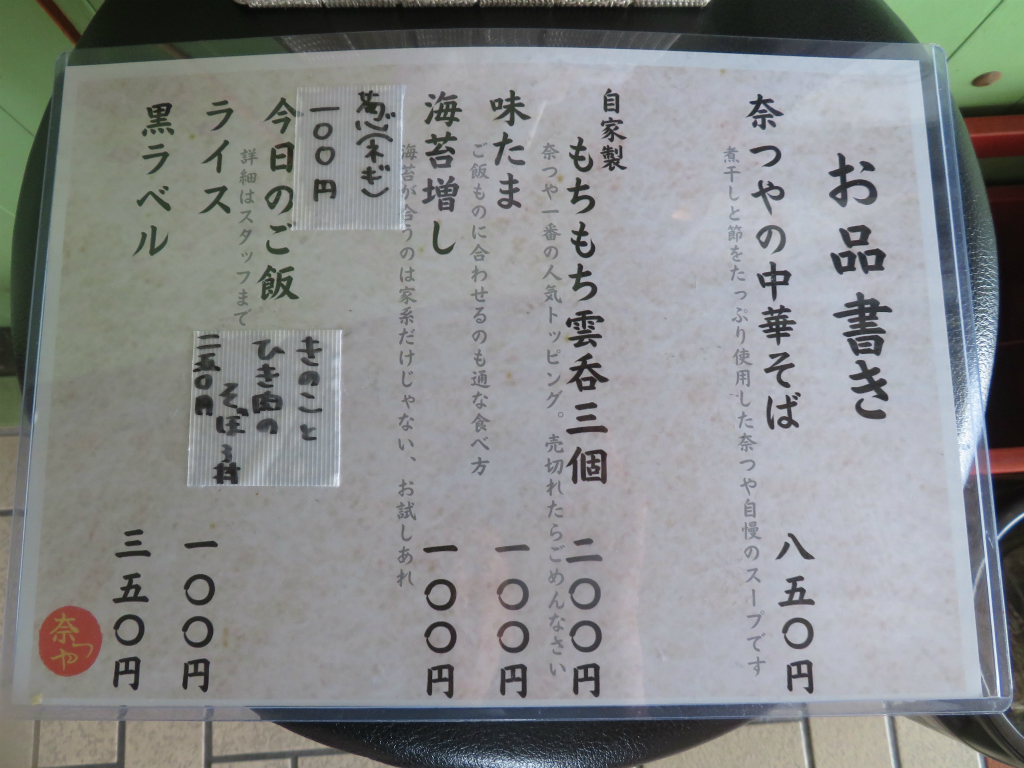 お品書き
奈つやの中華そば 八五〇円
煮干しと節をたっぷり使用した奈つや自慢のスープです
自家製
もちもち雲呑三個 二〇〇円
奈つや一番の人気トッピング。売切れたらごめんなさい
味たま 一〇〇円
ご飯ものに合わせるのも通な食べ方
海苔増し 一〇〇円
海苔が合うのは家系だけじゃない、お試しあれ
(ネギ)
一〇〇円
今日のご飯
詳細はスタッフまで
きのこと
ひき肉の
そぼろ丼
二五〇円
ライス 一〇〇円
黒ラベル 三五〇円
奈つや